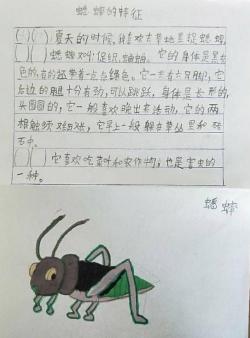 蟋蟀的特征
夏天的时候,我喜欢去草地里捉蟋蟀,
蟋蟀又叫:促织,蛐蛐。它的身体是黑
色的,有的翅旁着一点点绿色。它一共有六只脚,它
后边的腿十分有劲,可以跳跃,身体是长形的,
头圆圆的,它一般喜欢晚出来活动,它的两
根触须对着,它早上一般躲在草丛里和砖
石中。
它喜欢吃菜叶和农作物,也是害虫的
一种。
蟋蟀